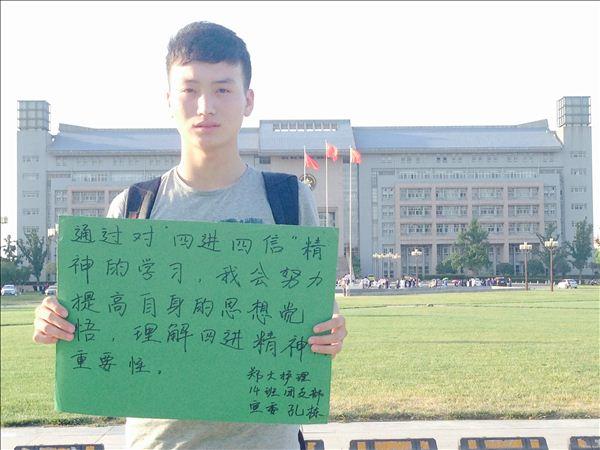 通过对"四进四信"精
神的学习，我会努力
提高自身的思想觉
悟，理解四进精神
重要性。
郑大护理
14班团支部
宣委 孔栋